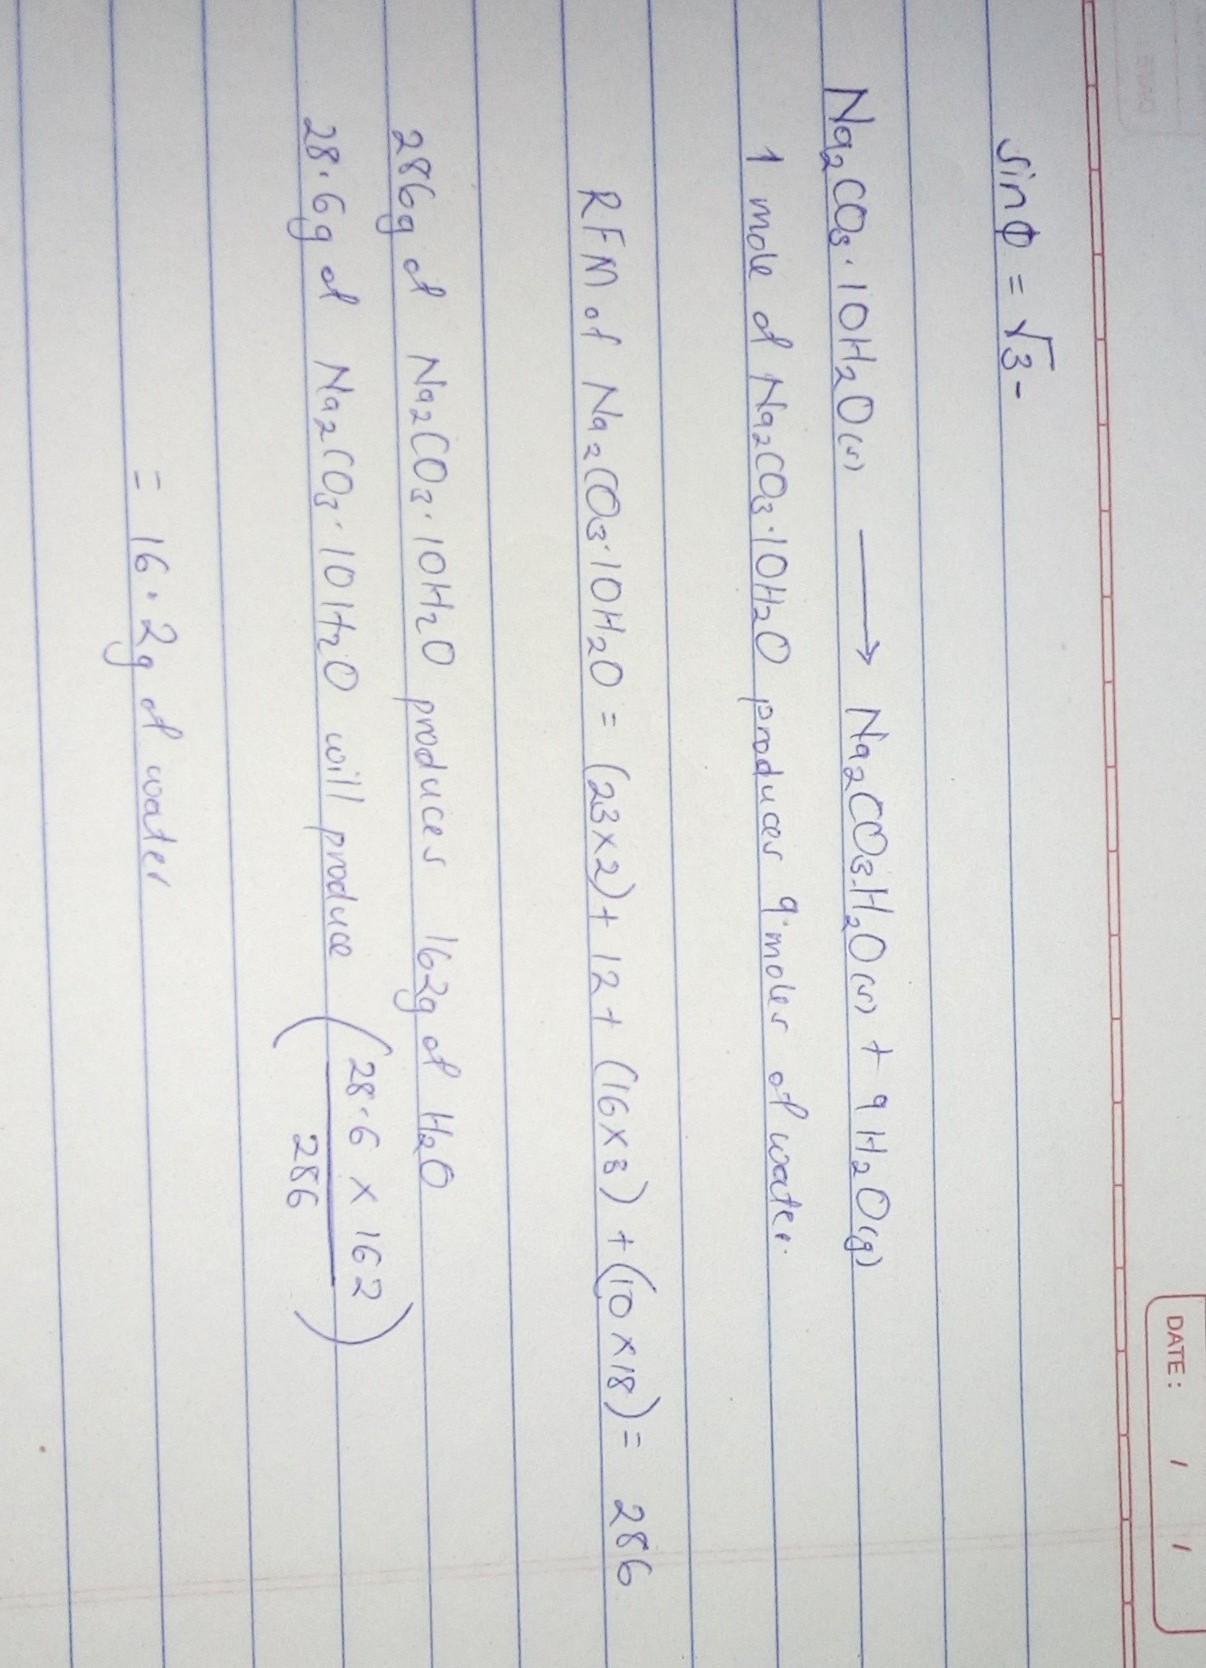 DATE: / /
sinΦ = √3 -
Na₂CO₃·10H₂O(s) ⟶ Na₂CO₃.H₂O(s) + 9H₂O(g)
1 mole of Na₂CO₃·10H₂O produces 9 moles of water.
RFM of Na₂CO₃·10H₂O = (23×2) + 12 + (16×3) + (10×18) = 286
286g of Na₂CO₃·10H₂O produces 162g of H₂O
28·6g of Na₂CO₃·10H₂O will produce (28·6 × 162 / 286)
= 16·2g of water